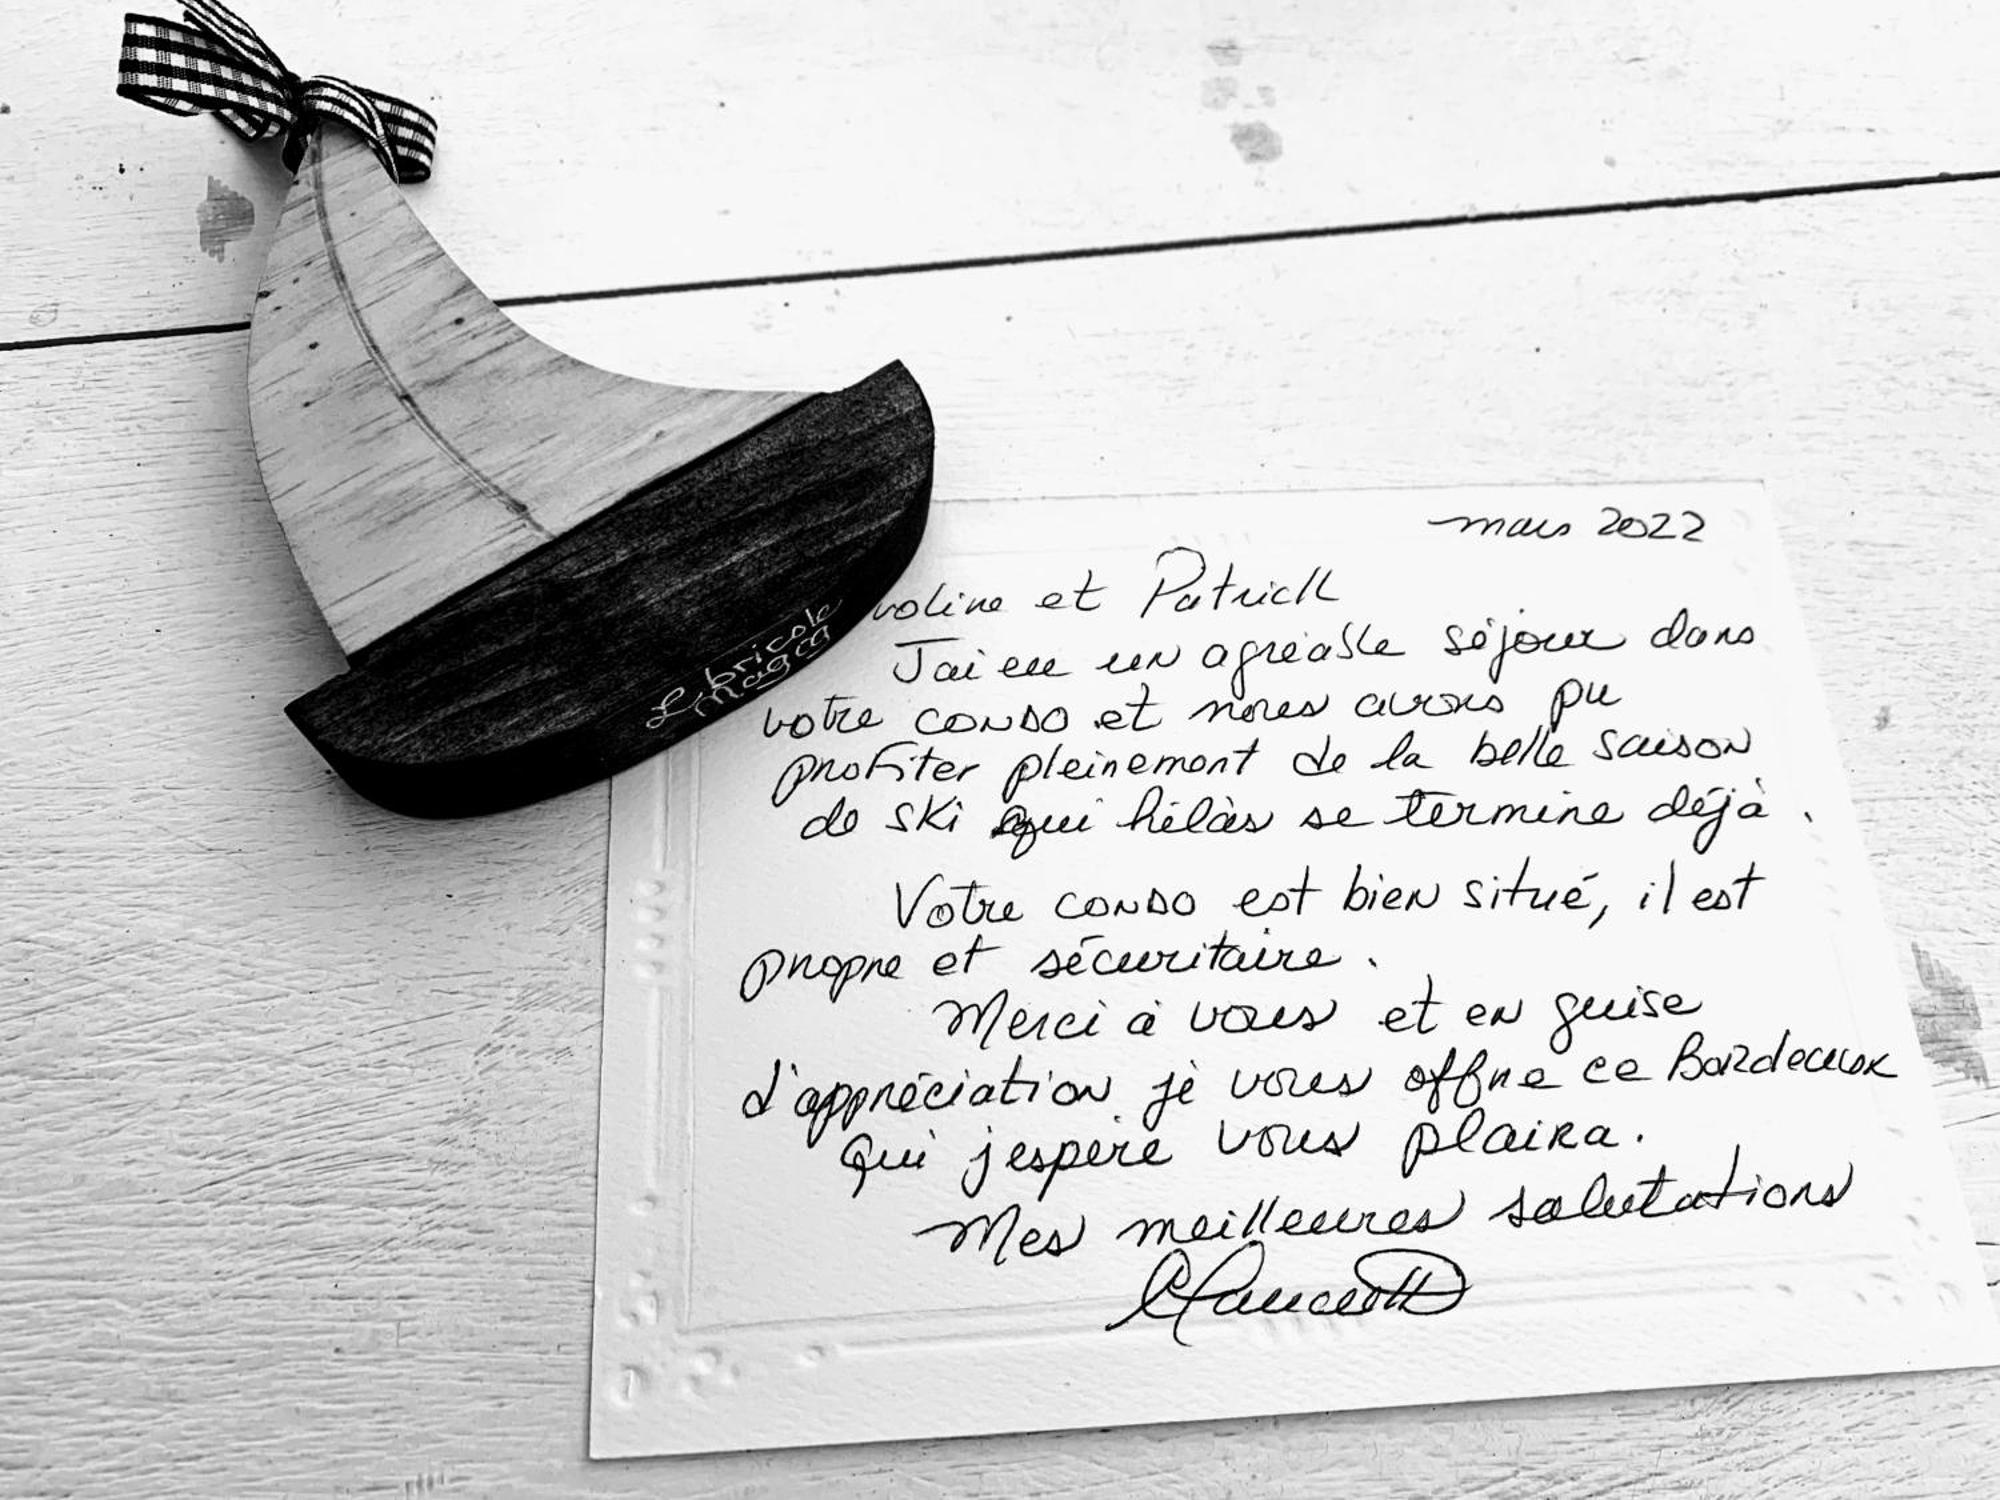 Le bricole
Magca
mars 2022
roline et Patrick
J'ai eu un agréable séjour dans
votre condo et nous avons pu
profiter pleinement de la belle saison
de ski qui hélàs se termine déjà.
Votre condo est bien situé, il est
propre et sécuritaire.
Merci à vous et en guise
d'appréciation je vous offre ce Bordeaux
qui j'espère vous plaira.
Mes meilleures salutations